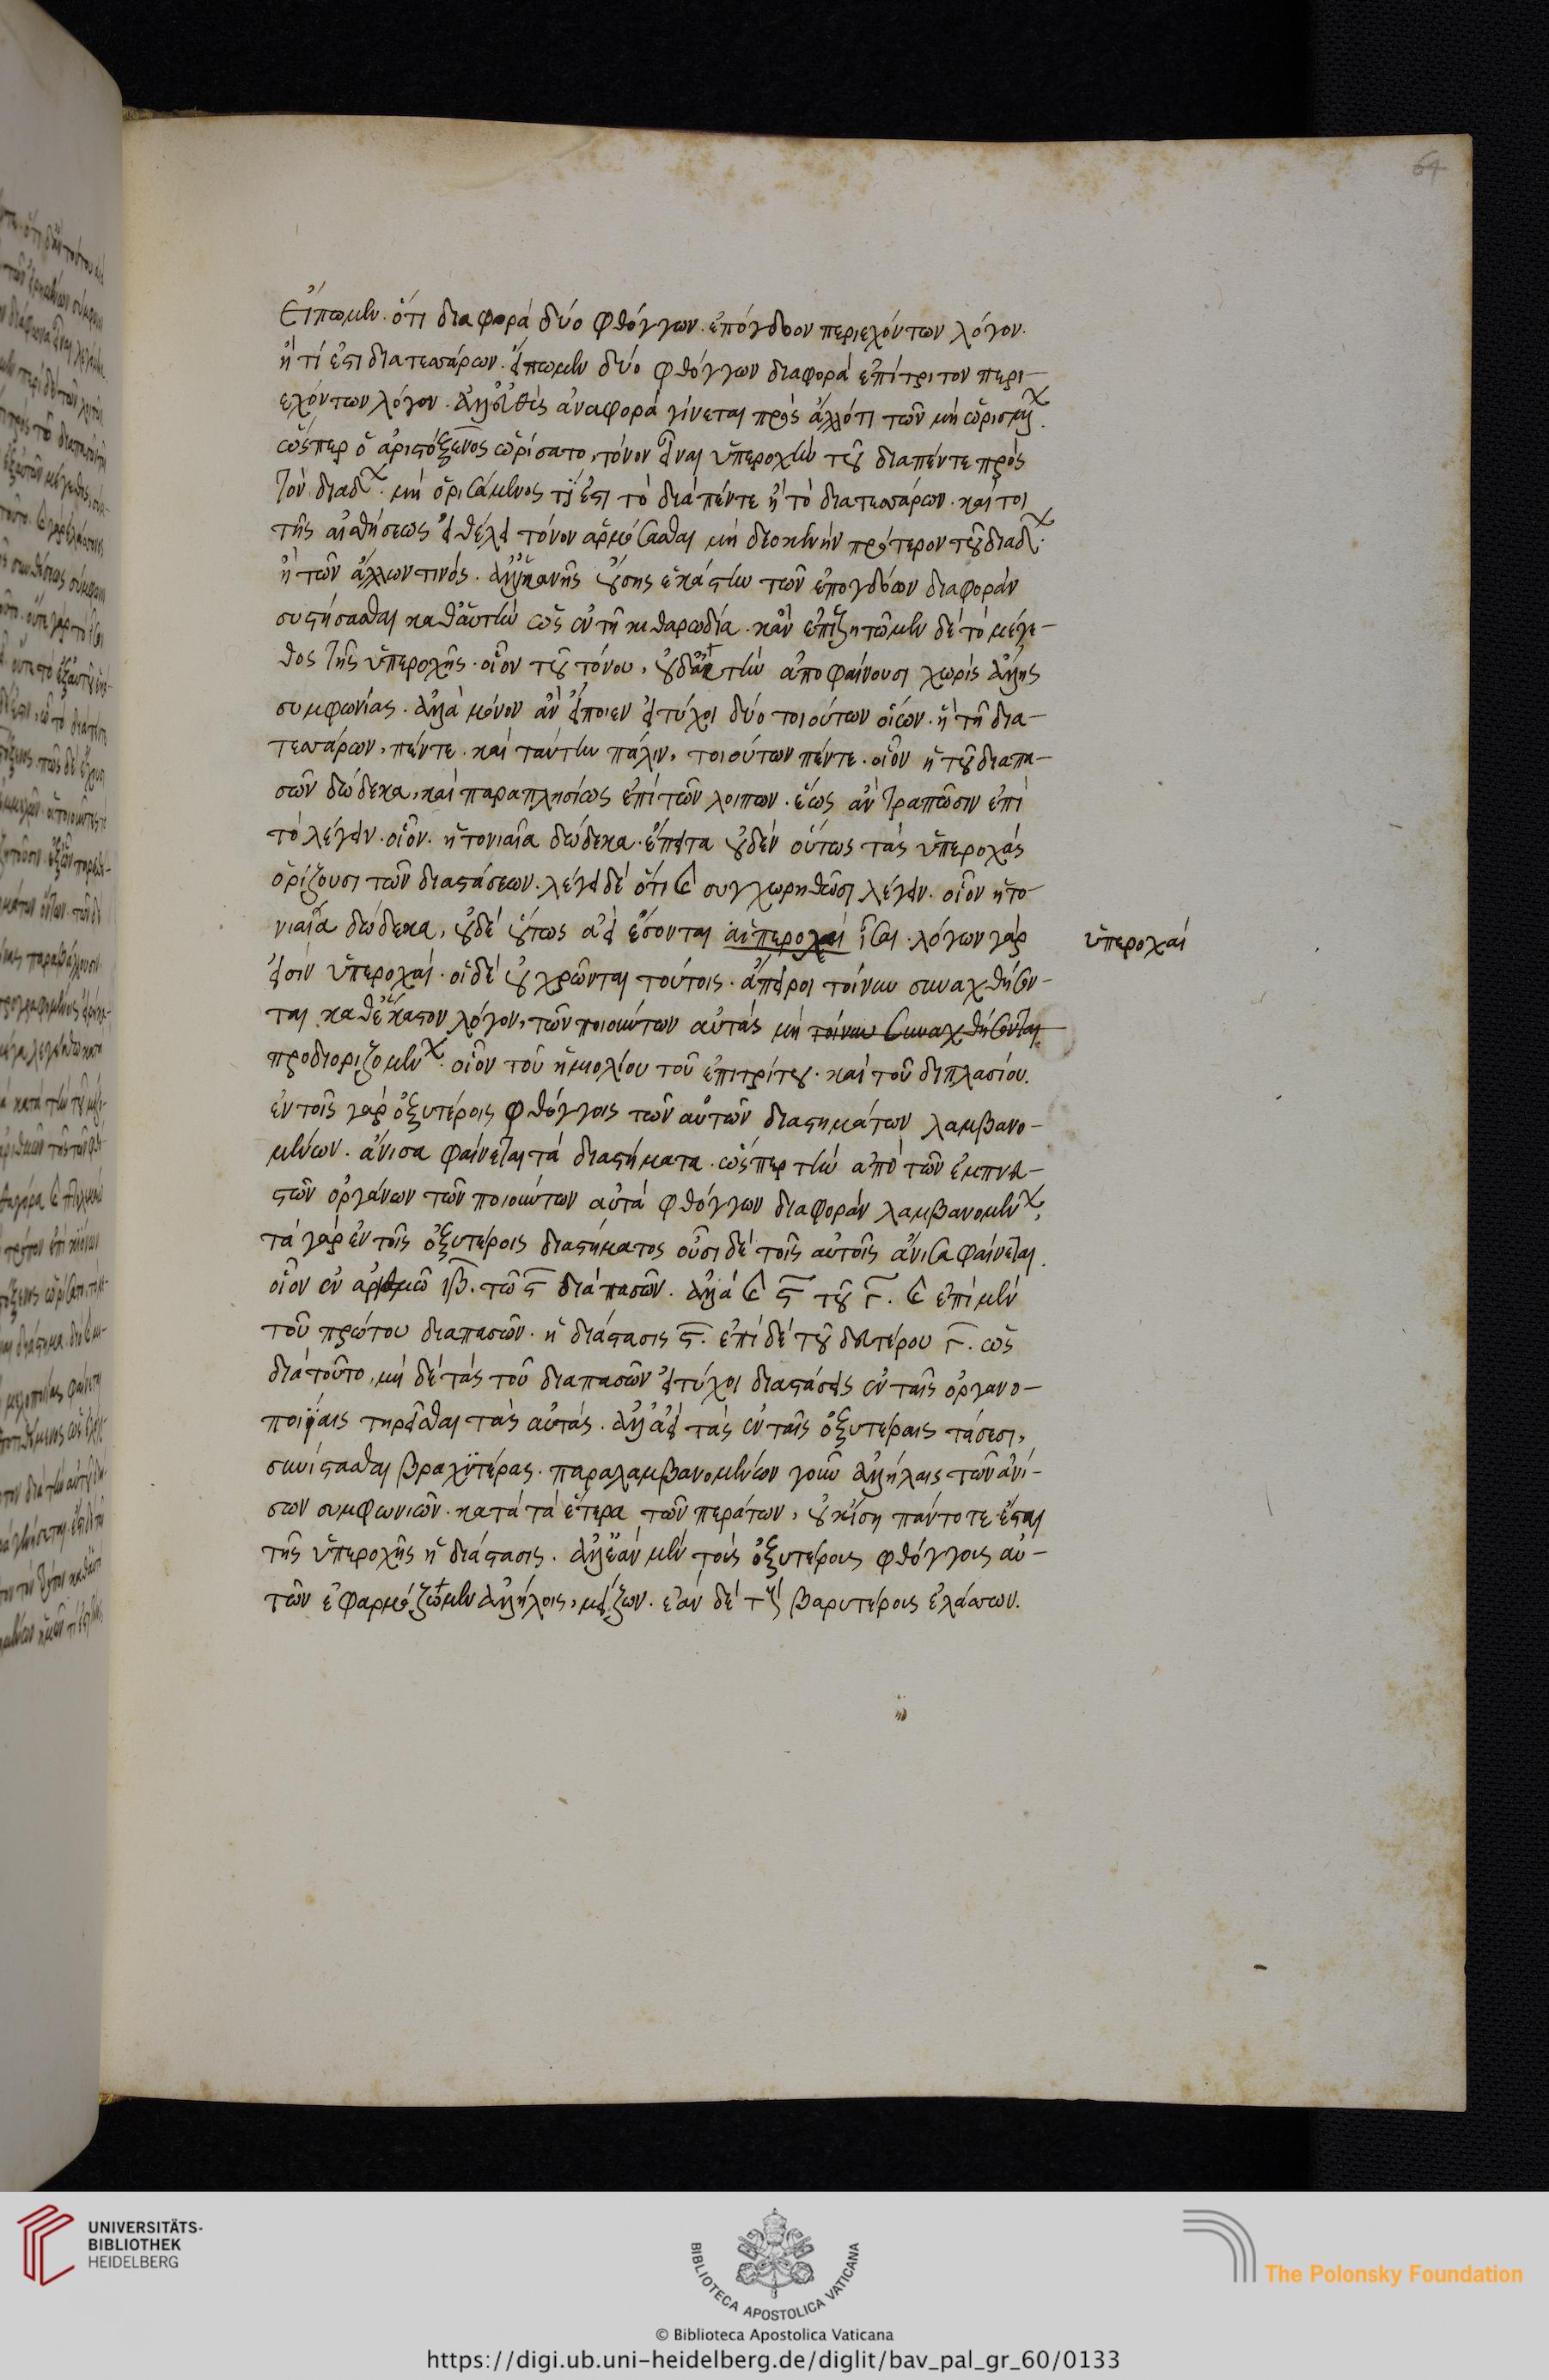 64
Εἴπωμεν. ὅτι διαφορὰ δύο φθόγγων. ἐπόγδοον περιεχόντων λόγον.
ἢ τί ἐστι διατεσσάρων. εἴπωμεν δύο φθόγγων διαφορὰ ἐπίτριτον περι-
εχόντων λόγον. εὐθὺς ἀναφορὰ γίνεται πρὸς ἄλλό τι τῶν μὴ ὡρισμένων.
ὥσπερ ὁ ἀριστόξενος ὡρίσατο, τόνον εἶναι ὑπεροχὴν τοῦ διαπέντε πρὸς
τὸν διαδ. μὴ ὁρισάμενος τί ἐστι τὸ διὰ πέντε ἢ τὸ διατεσσάρων. καί τοι
τῆς αἰσθήσεως εἰ θέλει τόνον ἁρμόσασθαι μὴ πρότερον τοῦ διαδ.
ἢ τῶν ἄλλων τινός. ἀλλ' ἱκανῆς οὔσης ἑκάστην τῶν ἐπογδόων διαφορὰν
συστήσασθαι καθ' αὑτὴν ὡς ἐν τῇ κιθαρωδία. κἂν ἐπιζητῶμεν δὲ τὸ μέγε-
θος τῆς ὑπεροχῆς. οἷον τοῦ τόνου, ἀποφαίνουσι χωρὶς ἄλλης
συμφωνίας. ἀλλὰ μόνον ἂν εἴποιεν εἰ τύχοι δύο τοιούτων οἵων. ἡ τῆ δια-
τεσσάρων, πέντε. καὶ ταύτην πάλιν, τοιούτων πέντε. οἷον ἡ τοῦ διαπα-
σῶν δώδεκα, καὶ παραπλησίως ἐπὶ τῶν λοιπων. ἕως ἂν τραπῶσιν ἐπὶ
τὸ λέγειν. οἷον. ἡ τονιαῖα δώδεκα. ἔπειτα οὐδὲν οὕτως τὰς ὑπεροχὰς
ὁρίζουσι τῶν διαστάσεων. λέγει δὲ ὅτι καὶ συγχωρηθῶσι λέγειν. οἷον ἡ το-
νιαῖα δώδεκα, οὐδὲ οὕτως ἀεὶ ἔσονται αἱ ὑπεροχαὶ ἴσαι. λόγων γάρ
ὑπεροχαί
εἰσὶν ὑπεροχαί. οἱ δὲ οὐ χρῶνται τούτοις. ἄπειροι τοίνυν συναχθήσον-
ται καθ' ἕκαστον λόγον, τῶν ποιούντων αὐτὰς μὴ τοίνυν συναχθήσονται
προδιοριζομένων. οἷον τοῦ ἡμιολίου τοῦ ἐπιτρίτου. καὶ τοῦ διπλασίου.
ἐν τοῖς γὰρ ὀξυτέροις φθόγγοις τῶν αὐτῶν διαστημάτων λαμβανο-
μένων. ἄνισα φαίνεται τὰ διαστήματα. ὥσπερ τὴν ἀπὸ τῶν ἐμπνευ-
στῶν ὀργάνων τῶν ποιούντων αὐτὰ φθόγγων διαφορὰν λαμβανομένων,
τὰ γὰρ ἐν τοῖς ὀξυτέροις διαστήματος οὖσι δὲ τοῖς αὐτοῖς ἄνισα φαίνεται.
οἷον ἐν ἀριθμῶ ιβ. τῶ ϛ διὰ πασῶν. ἀλλὰ καὶ ϛ τοῦ γ. καὶ ἐπὶ μὲν
τοῦ πρώτου διαπασῶν. ἡ διάστασις ϛ. ἐπὶ δὲ τοῦ δευτέρου γ. ὡς
διὰ τοῦτο, μὴ δὲ τὰς τοῦ διαπασῶν εἰ τύχοι διαστάσεις ἐν ταῖς ὀργανο-
ποιΐαις τηρεῖσθαι τὰς αὐτάς. ἀλλ' ἀεὶ τὰς ἐν ταῖς ὀξυτέραις τάσεσι,
συνίστασθαι βραχϋτέρας. παραλαμβανομένων γοῦν ἀλλήλαις τῶν ἀνί-
σων συμφωνιῶν. κατὰ τὰ ἕτερα τῶν περάτων, οὐκ ἴση πάντοτε ἔσται
τῆς ὑπεροχῆς ἡ διάστασις. ἀλλ' ἐὰν μὲν τοὺς ὀξυτέρους φθόγγοις αὐ-
τῶν ἐφαρμόζωμεν ἀλλήλοις, μείζων. ἐὰν δὲ τοὺς βαρυτέρους ἐλάσσων.
UNIVERSITÄTS-
BIBLIOTHEK
HEIDELBERG
BIBLIOTECA APOSTOLICA VATICANA
The Polonsky Foundation
© Biblioteca Apostolica Vaticana
https://digi.ub.uni-heidelberg.de/diglit/bav_pal_gr_60/0133